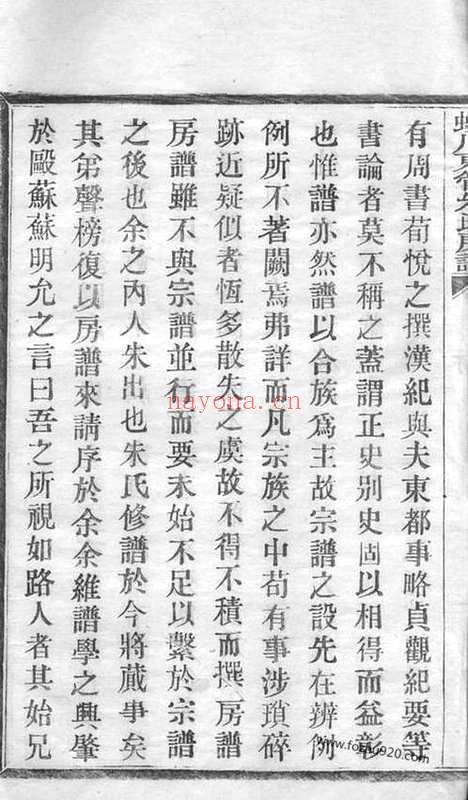 有周書荀悅之撰漢紀與夫東都事略貞觀紀要等
書論者莫不稱之蓋謂正史別史固以相得而益彰
也惟譜亦然譜以合族爲主故宗譜之設先在辨例
例所不著闕焉弗詳而凡宗族之中苟有事涉瑣碎
跡近疑似者恆多散失之虞故不得不積而撰房譜
房譜雖不與宗譜並行而要未始不足以繫於宗譜
之後也余之內人朱出也朱氏修譜於今將蕆事矣
其弟聲榜復以房譜來請序於余余維譜學之興肇
於歐蘇蘇明允之言曰吾之所視如路人者其始兄
nayona.cn
www.foxing920.com